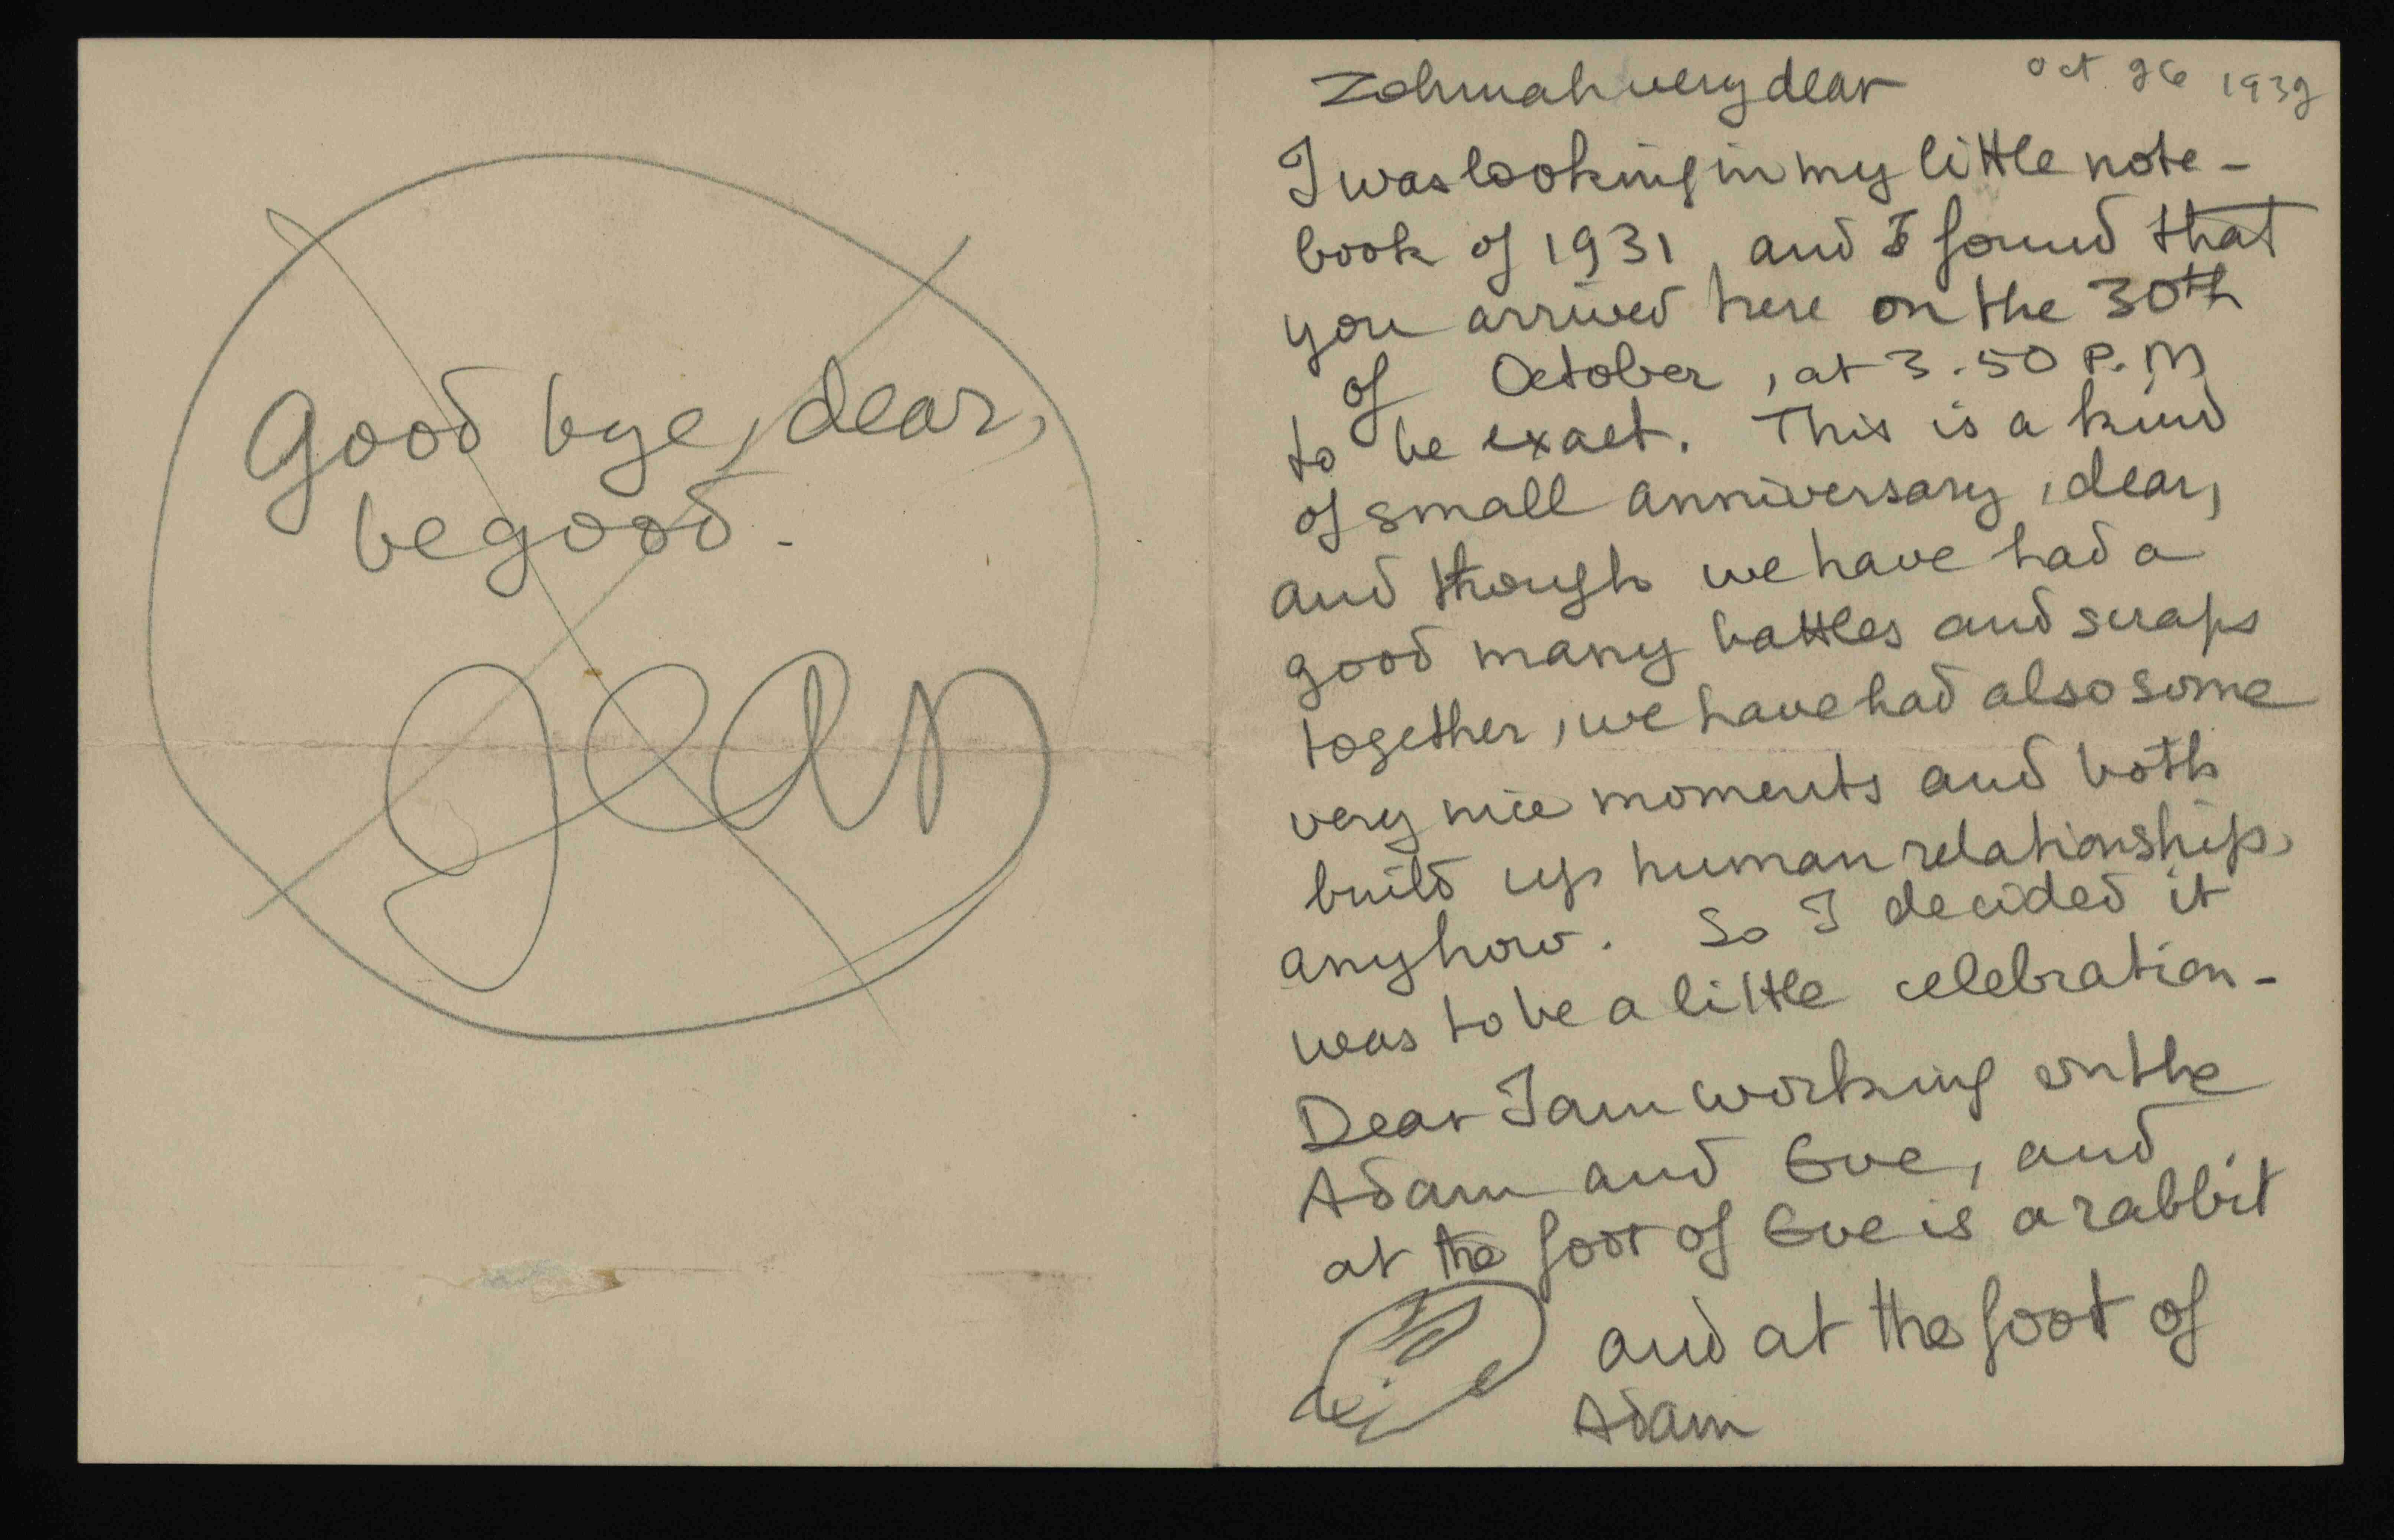 Good bye, dear,
be good.
Jean
Oct 26 1932
Zohmah very dear
I was looking in my little note-
book of 1931, and I found that
you arrived here on the 30th
of October, at 3.50 P.M
to be exact. This is a kind
of small anniversary, dear,
and though we have had a
good many battles and scraps
together, we have had also some
very nice moments and both
build up human relationships,
anyhow. So I decided it
was to be a little celebration-
Dear I am working on the
Adam and Eve, and
at the foot of Eve is a rabbit
and at the foot of
Adam